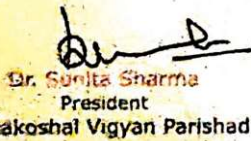 Dr. Sunita Sharma
President
akoshal Vigyan Parishad